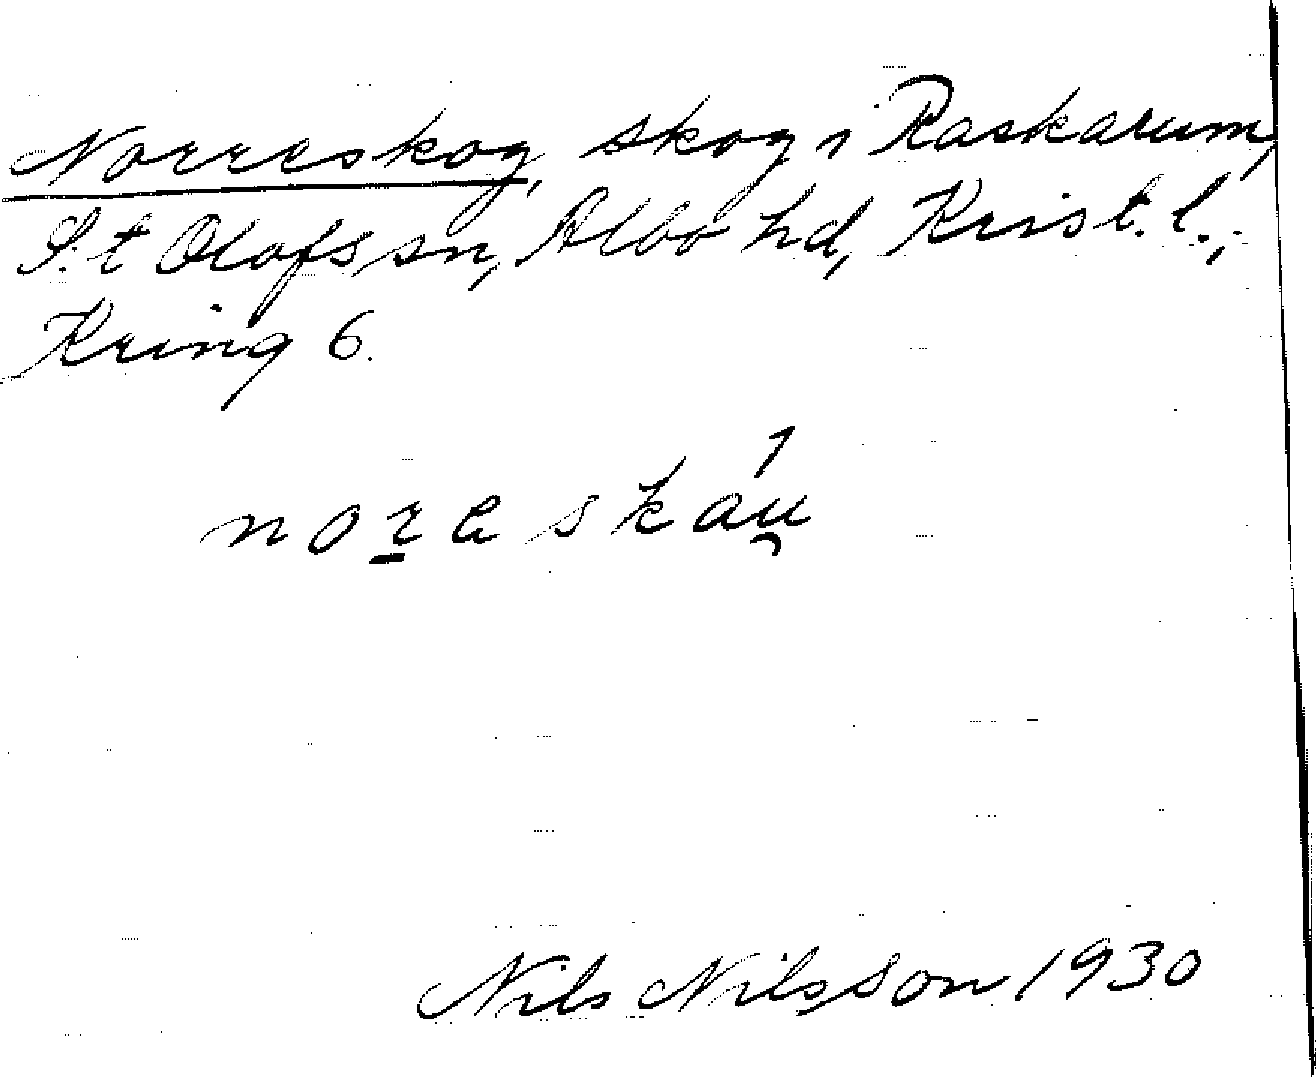 Norreskog, skog i Raskarum,
S:t Olofs sn, Albo hd, Krist. l.,
Kring 6.
noreskau
Nils Nilsson 1930